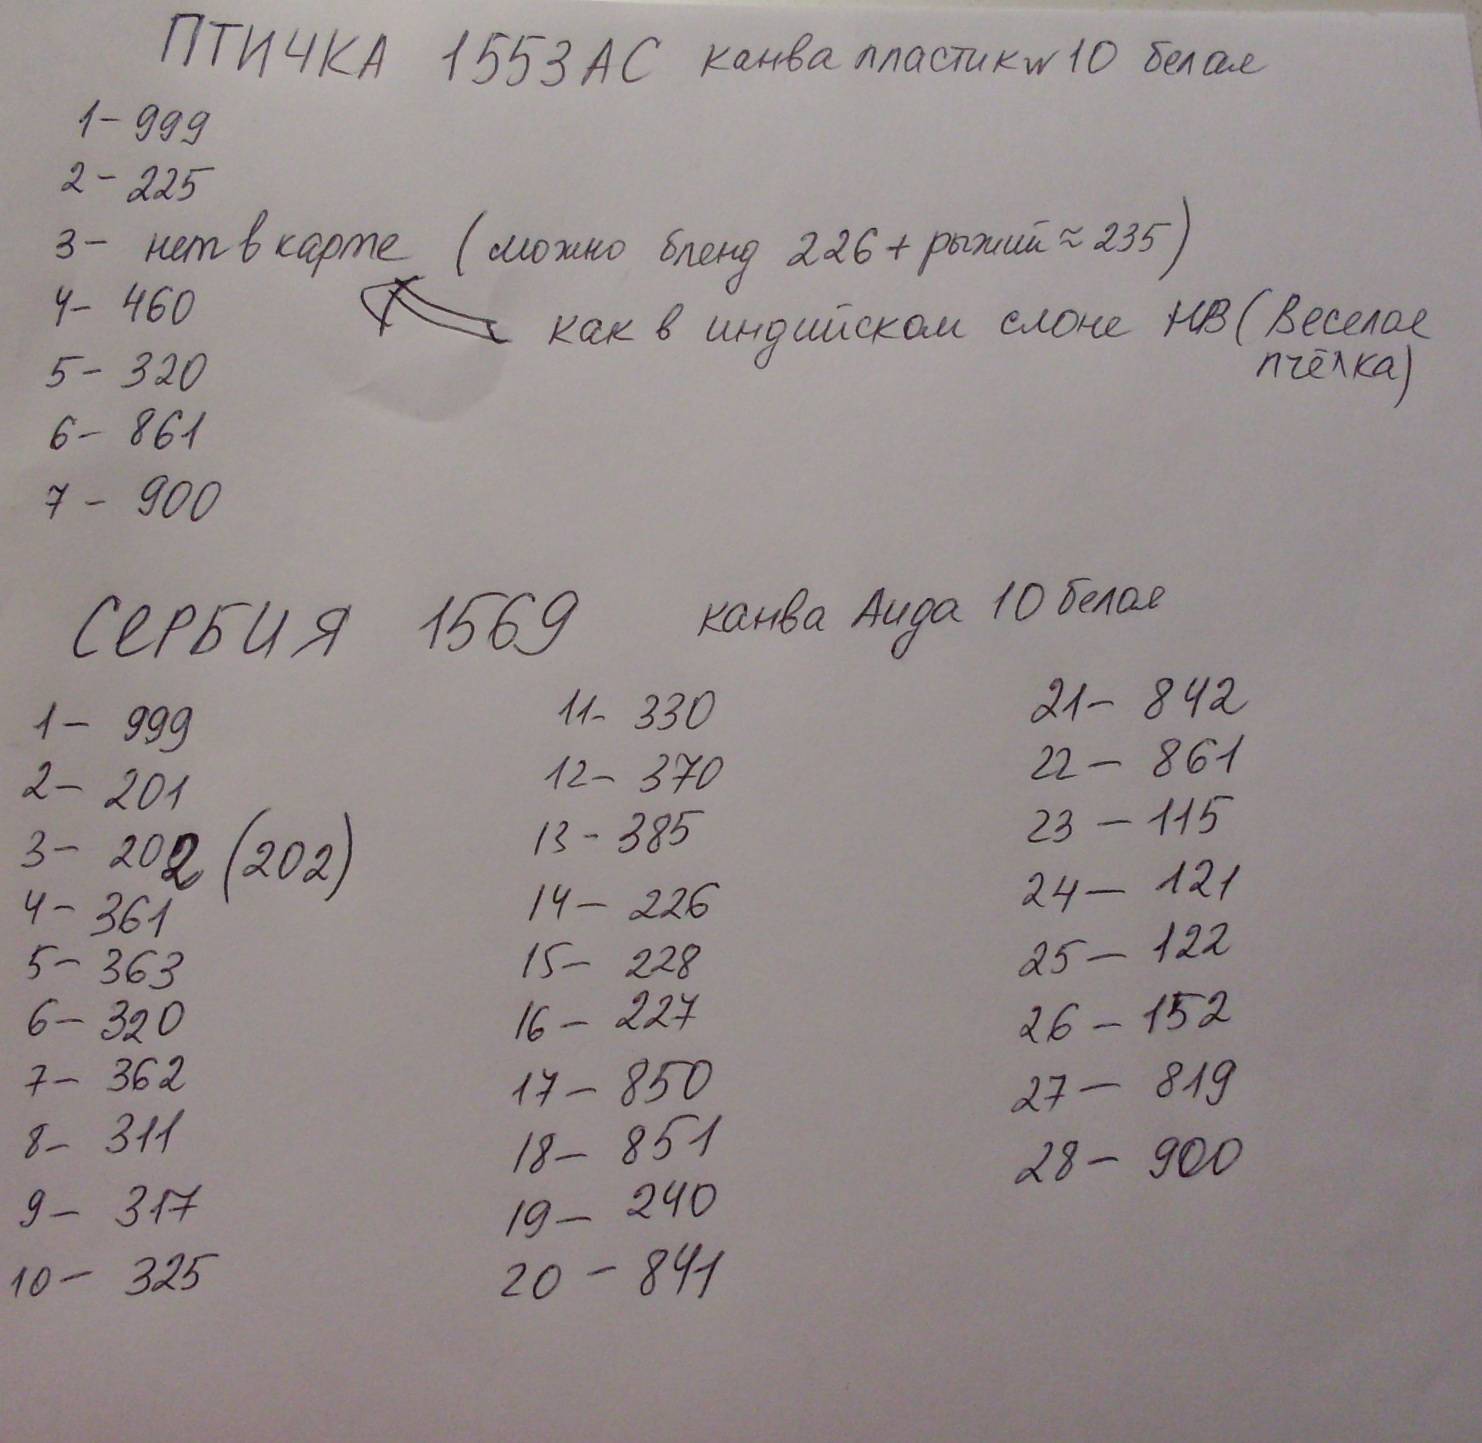 ПТИЧКА 1553АС канва пластик 10 белая
1- 999
2- 225
3- нет в карте (можно бленд 226 + рыжий ≈ 235)
4- 460
как в индийском слоне НВ (Веселая
пчёлка)
5- 320
6- 861
7- 900
СЕРБИЯ 1569 канва Аида 10 белая
1- 999
2- 201
3- 202 (202)
4- 361
5- 363
6- 320
7- 362
8- 311
9- 317
10- 325
11- 330
12- 370
13- 385
14- 226
15- 228
16- 227
17- 850
18- 851
19- 240
20- 841
21- 842
22- 861
23- 115
24- 121
25- 122
26- 152
27- 819
28- 900